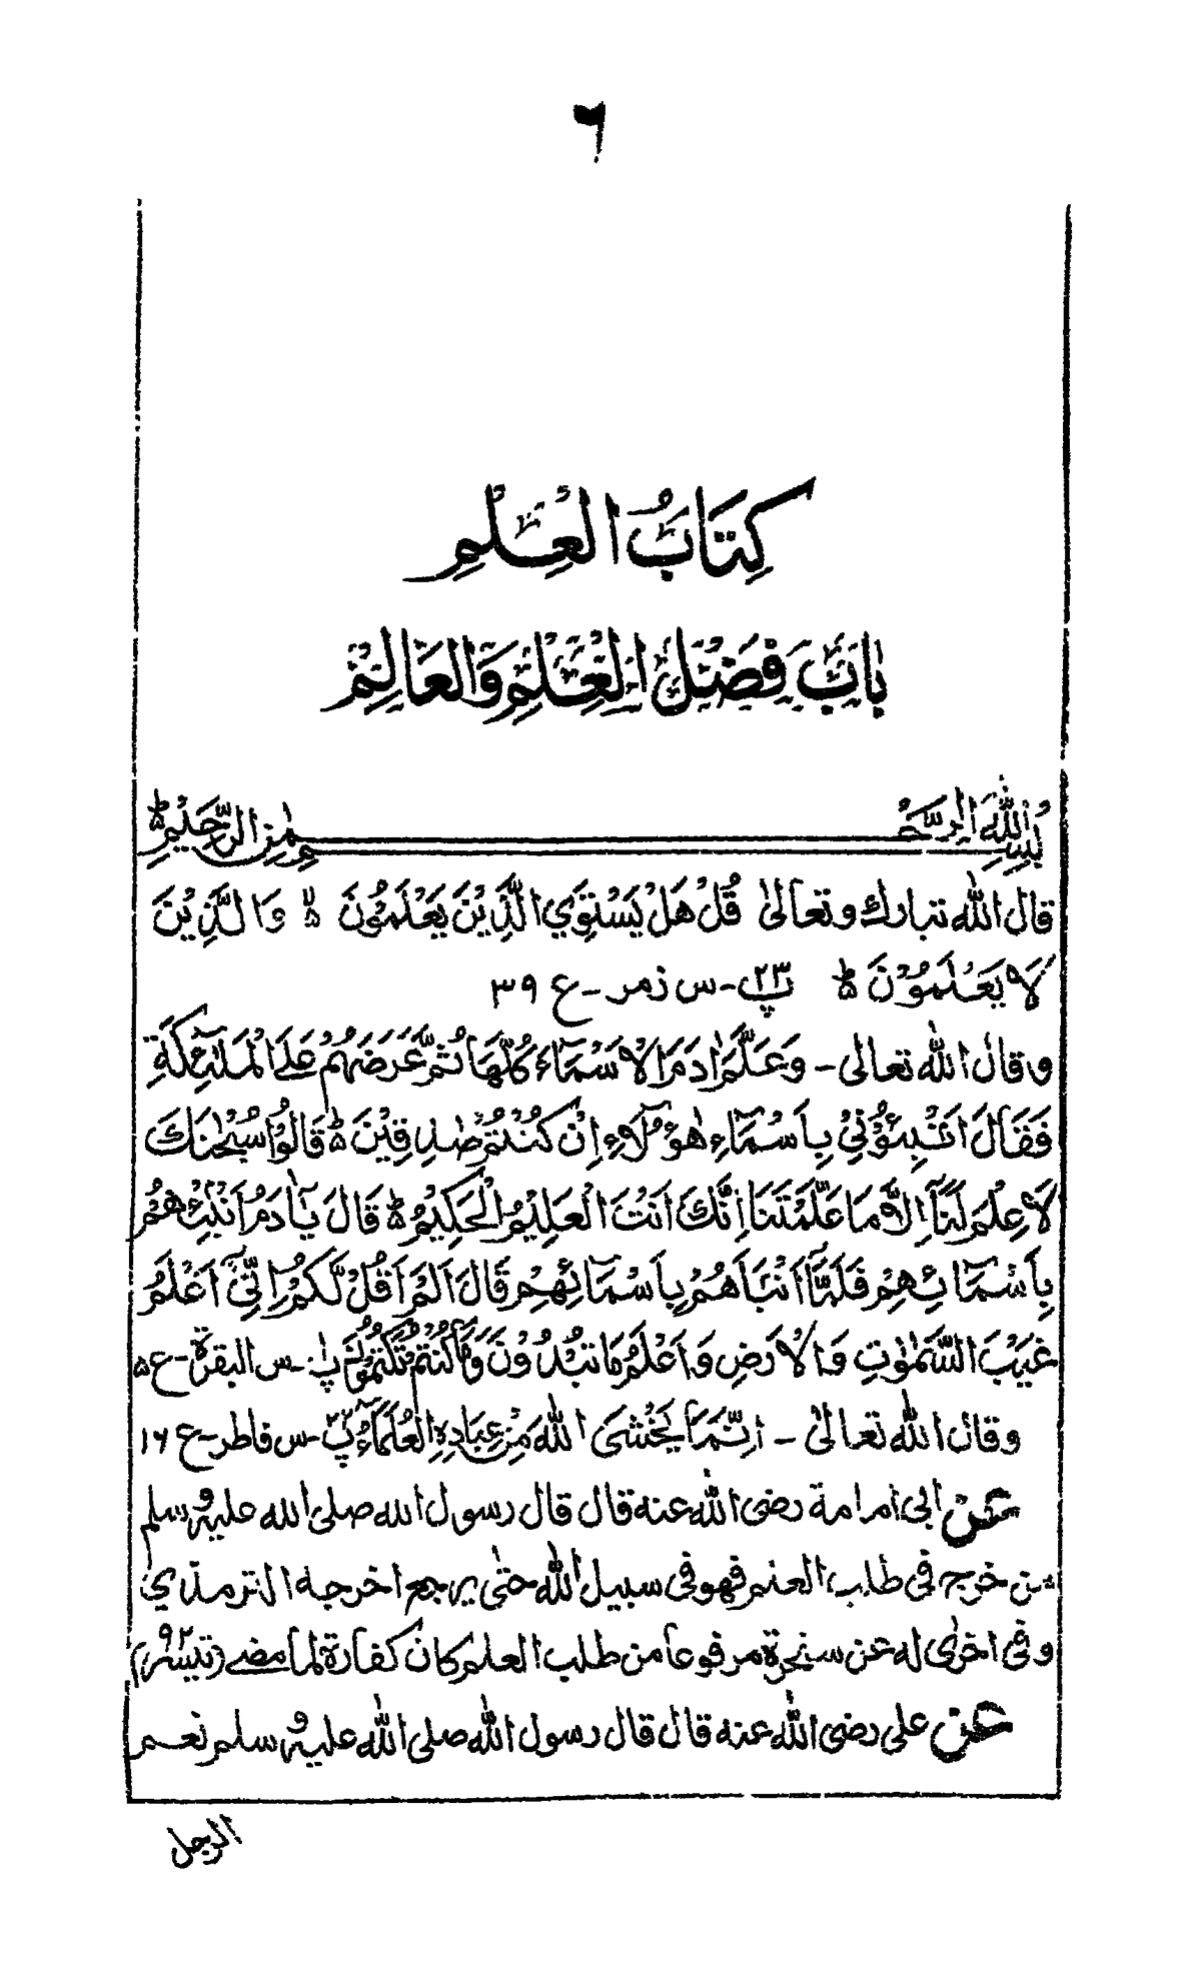 ٦
كِتَابُ الْعِلْمِ
بَابُ فَضْلِ الْعِلْمِ وَالْعَالِمِ
بِسْمِ اللهِ الرَّحْمٰنِ الرَّحِيْمِ ۝
قال الله تبارك وتعالىٰ قُلْ هَلْ يَسْتَوِي الَّذِيْنَ يَعْلَمُوْنَ وَالَّذِيْنَ
لَا يَعْلَمُوْنَ ۝ پ٢٣ - س زمر - ع ٣٩
وقال الله تعالى - وَعَلَّمَ اٰدَمَ الْاَسْمَآءَ كُلَّهَا ثُمَّ عَرَضَهُمْ عَلَى الْمَلٰٓئِكَةِ
فَقَالَ اَنْۢبِئُوْنِيْ بِاَسْمَآءِ هٰٓؤُلَآءِ اِنْ كُنْتُمْ صٰدِقِيْنَ ۝ قَالُوْا سُبْحٰنَكَ
لَا عِلْمَ لَنَآ اِلَّا مَا عَلَّمْتَنَا اِنَّكَ اَنْتَ الْعَلِيْمُ الْحَكِيْمُ ۝ قَالَ يٰٓاٰدَمُ اَنْۢبِئْهُمْ
بِاَسْمَآئِهِمْ فَلَمَّآ اَنْۢبَاَهُمْ بِاَسْمَآئِهِمْ قَالَ اَلَمْ اَقُلْ لَّكُمْ اِنِّيْٓ اَعْلَمُ
غَيْبَ السَّمٰوٰتِ وَالْاَرْضِ وَاَعْلَمُ مَا تُبْدُوْنَ وَمَا كُنْتُمْ تَكْتُمُوْنَ پ١ - س البقرة - ع ٥
وقال الله تعالىٰ - اِنَّمَا يَخْشَى اللهَ مِنْ عِبَادِهِ الْعُلَمَآءُ پ٢٢ - س فاطر - ع ١٦
عن ابى امامة رضى الله عنه قال قال رسول الله صلى الله عليه وسلم
من خرج فى طلب العلم فهو فى سبيل الله حتى يرجع اخرجه الترمذي
وفى اخرىٰ له عن سنجرة مرفوعا من طلب العلم كان كفارة لما مضے (تيسير)
عن على رضى الله عنه قال قال رسول الله صلى الله عليه وسلم نعم
الرجل